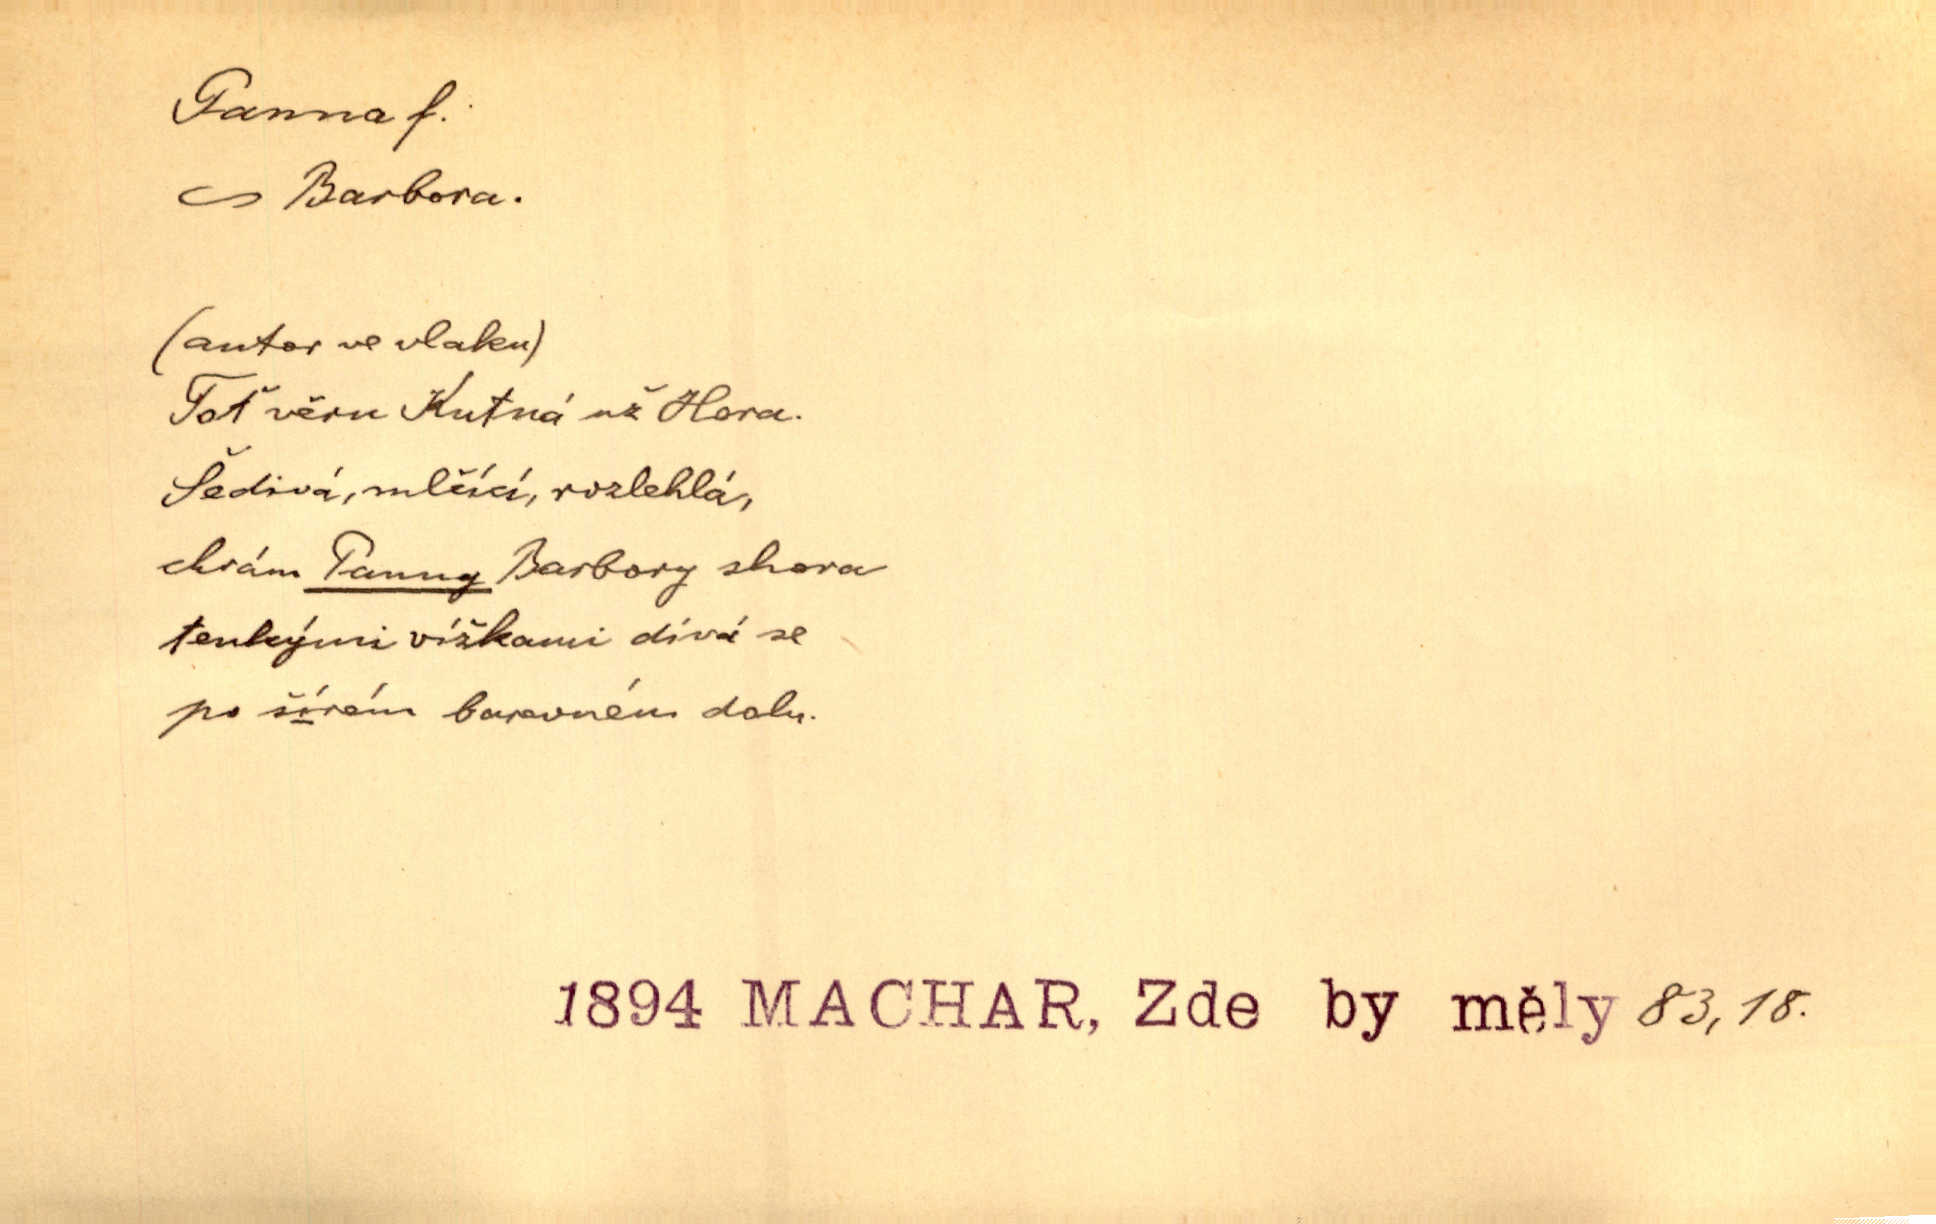 Panna f.
~ Barbora.
(autor ve vlaku)
Toť věru Kutná už Hora.
Šedivá, mlčící, rozlehlá,
chrám Panny Barbory shora
tenkými vížkami dívá se
po šírém barevném dolu.
1894 MACHAR, Zde by měly 83, 18.